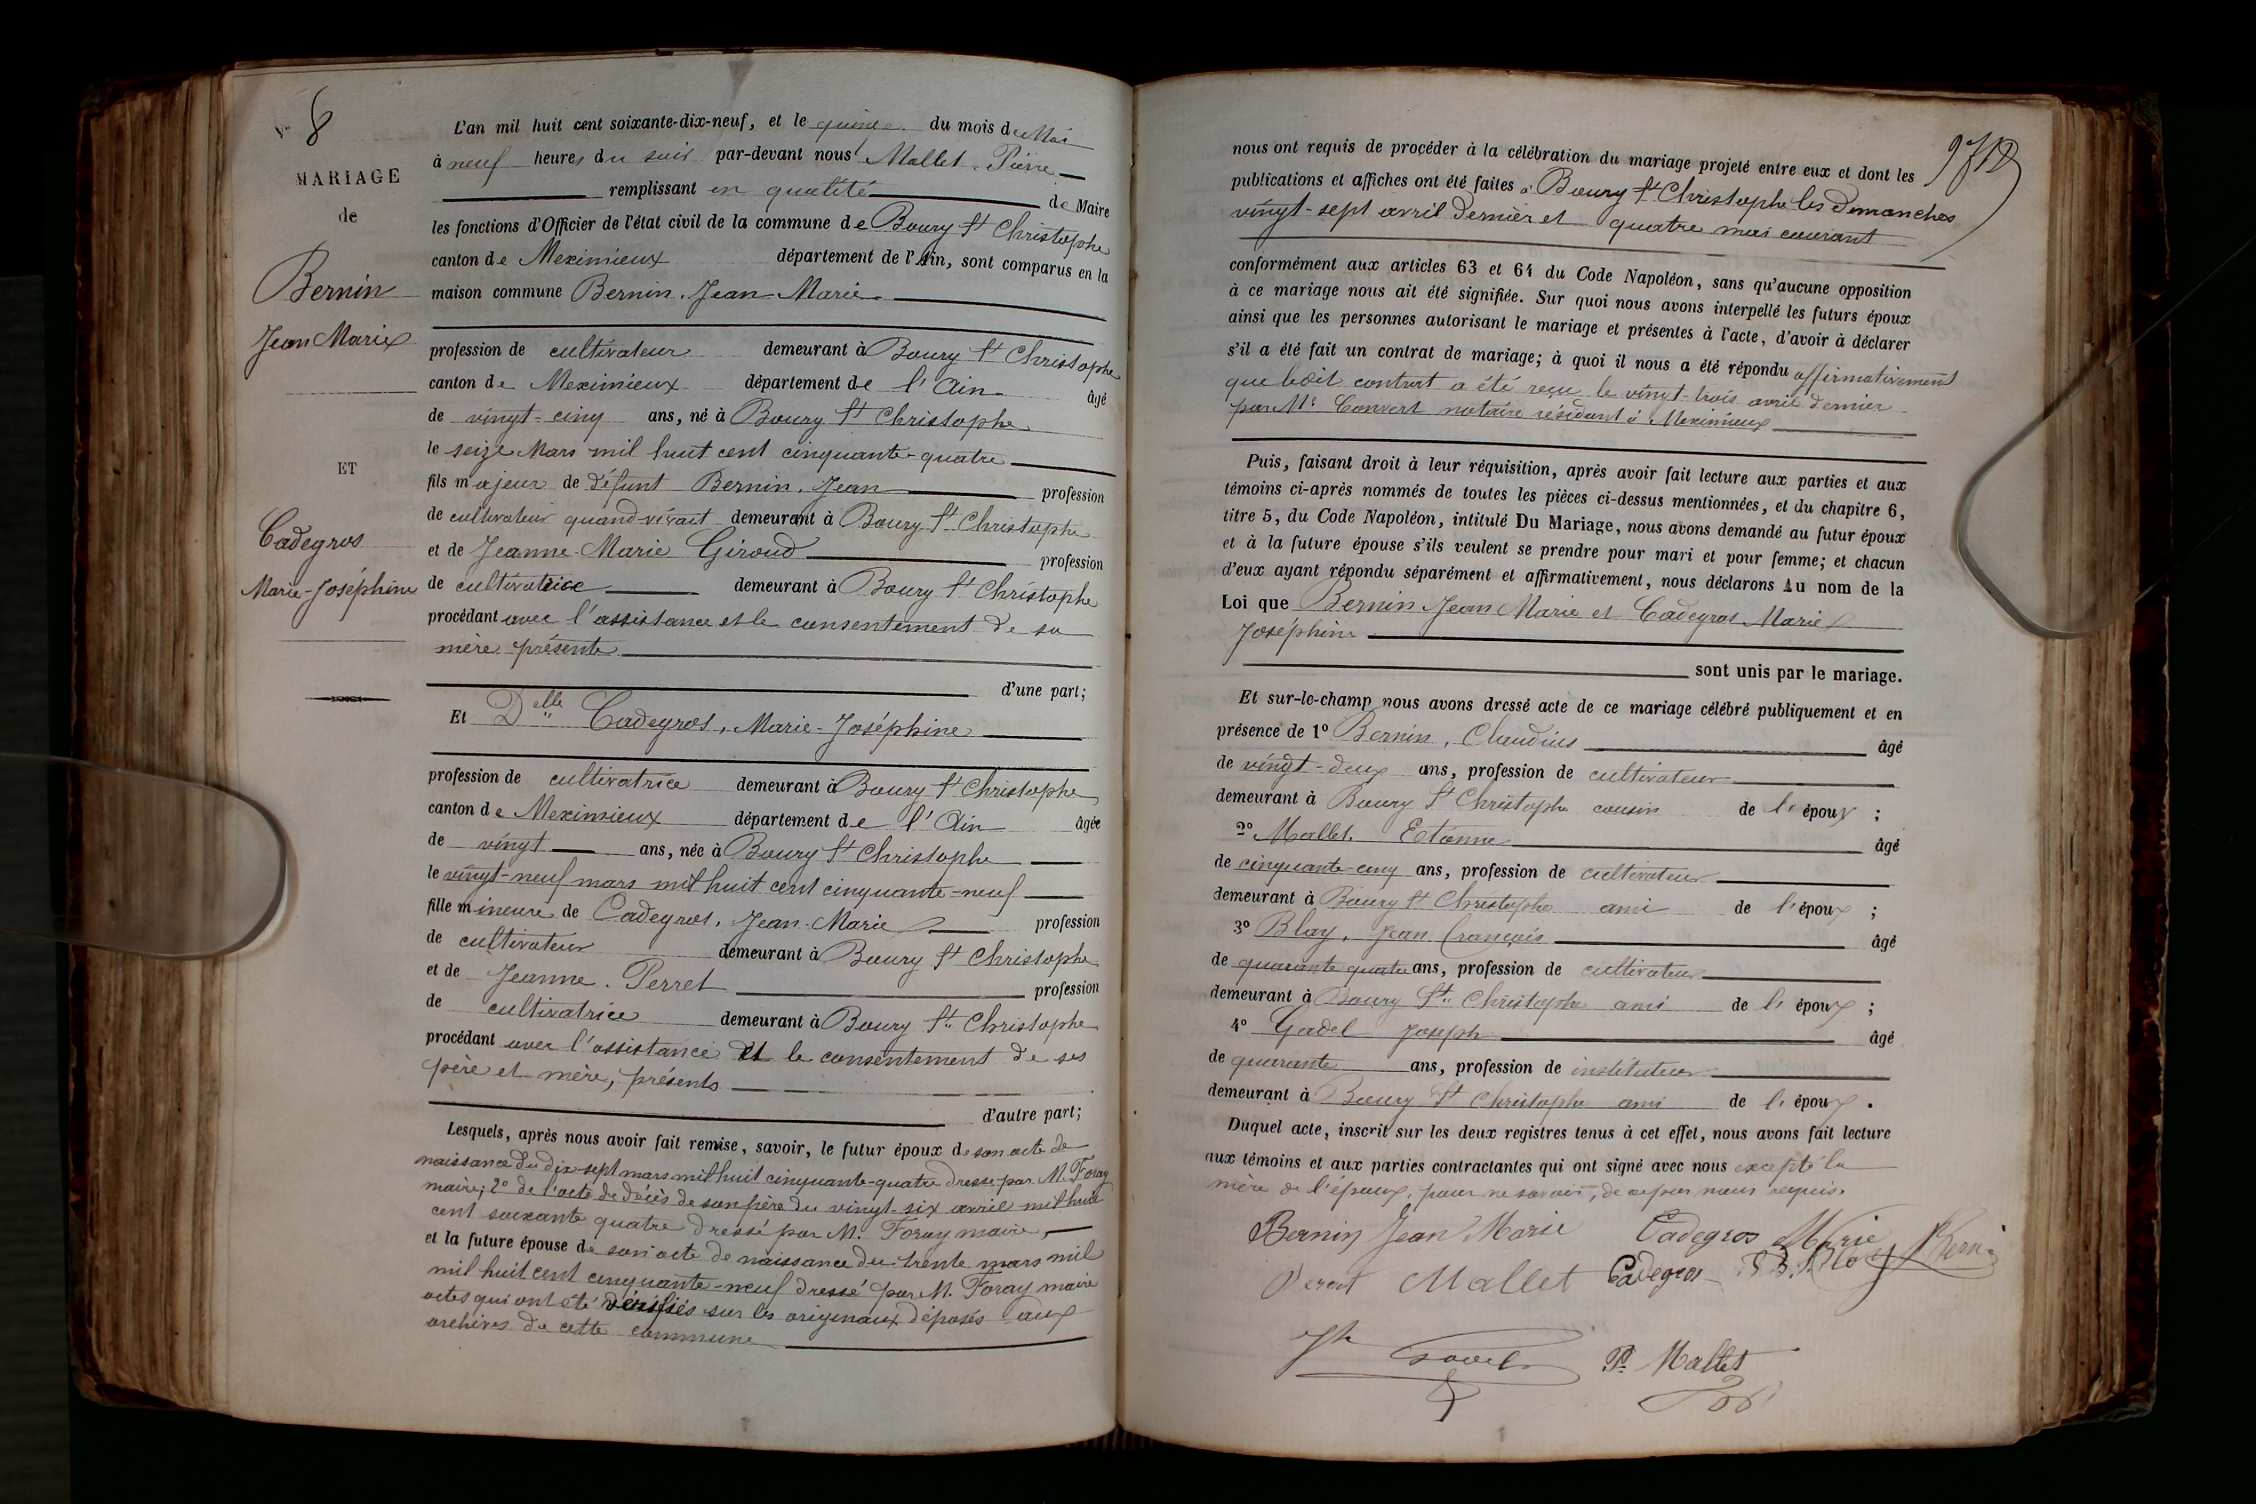 N° 8
MARIAGE
de
Bernin
Jean Marie
ET
Cadegros
Marie-Joséphine
L'an mil huit cent soixante-dix-neuf, et le quinze du mois de Mai
à neuf heures du soir par-devant nous Mallet Pierre
remplissant en qualité de Maire
les fonctions d'Officier de l'état civil de la commune de Boury St Christophe
canton de Meximieux département de l'Ain, sont comparus en la
maison commune Bernin. Jean Marie
profession de cultivateur demeurant à Boury St Christophe
canton de Meximieux département de l'Ain âgé
de vingt-cinq ans, né à Boury St Christophe
le seize Mars mil huit cent cinquante-quatre
fils majeur de défunt Bernin. Jean profession
de cultivateur quand vivait demeurant à Boury St Christophe
et de Jeanne-Marie Giroud profession
de cultivatrice demeurant à Boury St Christophe
procédant avec l'assistance et le consentement de sa
mère présente
d'une part;
Et Delle Cadegros, Marie-Joséphine
profession de cultivatrice demeurant à Boury St Christophe
canton de Meximieux département de l'Ain âgée
de vingt ans, née à Boury St Christophe
le vingt-neuf mars mil huit cent cinquante-neuf
fille mineure de Cadegros, Jean-Marie profession
de cultivateur demeurant à Boury St Christophe
et de Jeanne. Perret profession
de cultivatrice demeurant à Boury St Christophe
procédant avec l'assistance et le consentement de ses
père et mère, présents
d'autre part;
Lesquels, après nous avoir fait remise, savoir, le futur époux de son acte de
naissance du dix-sept mars mil huit cinquante-quatre dressé par M. Foray
maire; 2° de l'acte de décès de son père du vingt-six avril mil huit
cent soixante quatre dressé par M. Foray maire,
et la future épouse de son acte de naissance du trente mars mil
mil huit cent cinquante-neuf dressé par M. Foray maire
actes qui ont été vérifiés sur les originaux déposés aux
archives de cette commune
nous ont requis de procéder à la célébration du mariage projeté entre eux et dont les
publications et affiches ont été faites à Boury St Christophe les dimanches
vingt-sept avril dernier et quatre mai courant
conformément aux articles 63 et 64 du Code Napoléon, sans qu'aucune opposition
à ce mariage nous ait été signifiée. Sur quoi nous avons interpellé les futurs époux
ainsi que les personnes autorisant le mariage et présentes à l'acte, d'avoir à déclarer
s'il a été fait un contrat de mariage; à quoi il nous a été répondu affirmativement
que ledit contrat a été reçu le vingt-trois avril dernier
par Me Convert notaire résidant à Meximieux
Puis, faisant droit à leur réquisition, après avoir fait lecture aux parties et aux
témoins ci-après nommés de toutes les pièces ci-dessus mentionnées, et du chapitre 6,
titre 5, du Code Napoléon, intitulé Du Mariage, nous avons demandé au futur époux
et à la future épouse s'ils veulent se prendre pour mari et pour femme; et chacun
d'eux ayant répondu séparément et affirmativement, nous déclarons Au nom de la
Loi que Bernin Jean Marie et Cadegros Marie
Joséphine
sont unis par le mariage.
Et sur-le-champ nous avons dressé acte de ce mariage célébré publiquement et en
présence de 1° Bernin, Claudius âgé
de vingt-deux ans, profession de cultivateur
demeurant à Boury St Christophe cousin de l'époux ;
2° Mallet. Etienne âgé
de cinquante-cinq ans, profession de cultivateur
demeurant à Boury St Christophe ami de l'époux ;
3° Blay, Jean François âgé
de quarante quatre ans, profession de cultivateur
demeurant à Boury St Christophe ami de l'époux ;
4° Gadel Joseph âgé
de quarante ans, profession de instituteur
demeurant à Boury St Christophe ami de l'époux .
Duquel acte, inscrit sur les deux registres tenus à cet effet, nous avons fait lecture
aux témoins et aux parties contractantes qui ont signé avec nous excepté la
mère de l'époux, pour ne savoir, de ce par nous requis.
Bernin Jean Marie Cadegros Marie
Mallet Cadegros
Pre Mallet